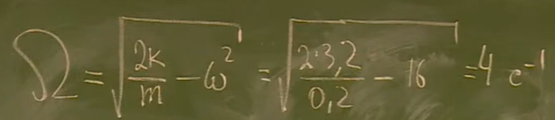 Ω = √(2k/m − ω²) = √(2·3,2/0,2 − 16) = 4 c⁻¹